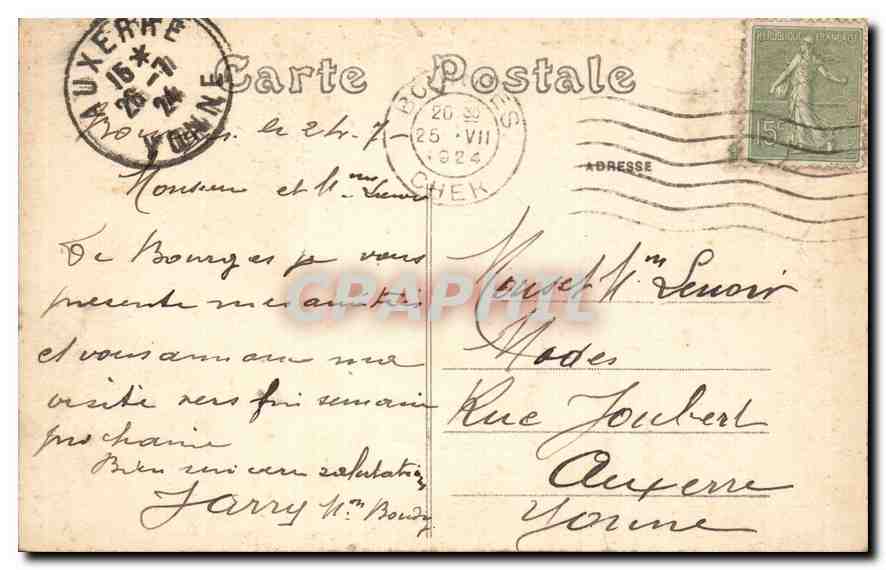 AUXERRE
15 * -7
26 24
YONNE
Carte Postale
BOURGES
20 30
25 -VII
1924
CHER
RÉPUBLIQUE FRANÇAISE
15c
ADRESSE
Bourges le 24-7-
Monsieur et Mme Lenoir
De Bourges je vous
présente mes amitiés
et vous annonce ma
visite vers fin semaine
prochaine
Bien sincères salutations
Jarry Mon
Mons et Mme Lenoir
Modes
Rue Joubert
Auxerre
Yonne
CPAPHIL